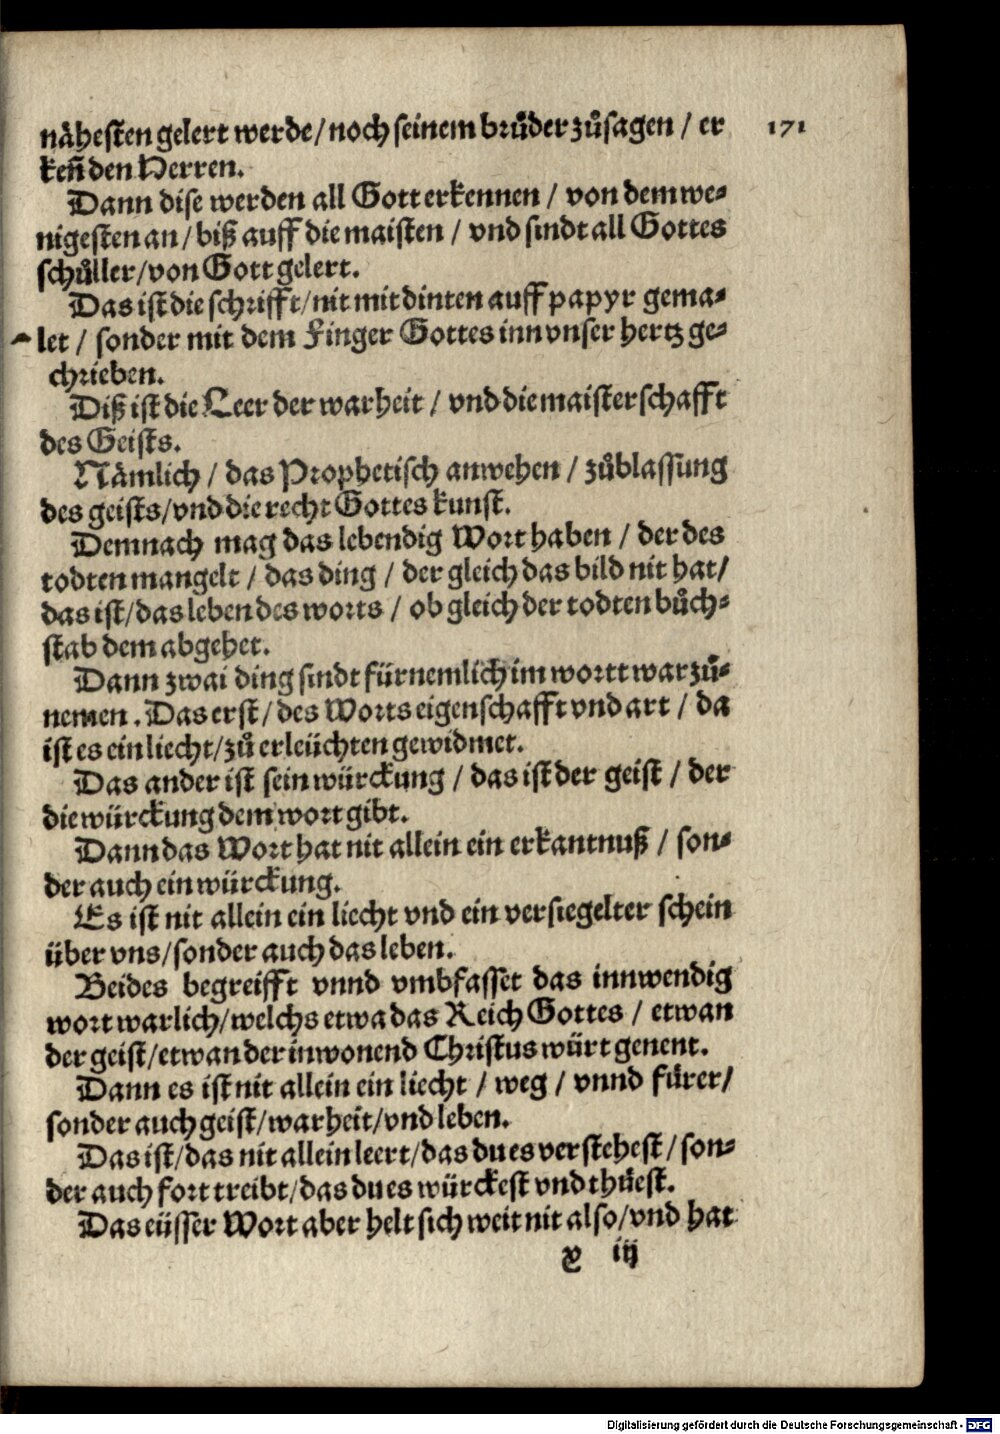 nåhesten gelert werde / noch seinem brůder zůsagen / er 171
keñ den Herren.
Dann dise werden all Gott erkennen / von dem we⸗
nigesten an / biß auff die maisten / vnd sindt all Gottes
schůller / von Gott gelert.
Das ist die schrifft / nit mit dinten auff papyr gema⸗
let / sonder mit dem Finger Gottes inn vnser hertz ge⸗
chrieben.
Diß ist die Leer der warheit / vnd die maisterschafft
des Geists.
Nåmlich / das Prophetisch anwehen / zůblassung
des geists / vnd die recht Gottes kunst.
Demnach mag das lebendig Wort haben / der des
todten mangelt / das ding / der gleich das bild nit hat /
das ist / das leben des worts / ob gleich der todten bůch⸗
stab dem abgehet.
Dann zwai ding sindt fürnemlich im wortt war zů⸗
nemen. Das erst / des Worts eigenschafft vnd art / da
ist es ein liecht / zů erleüchten gewidmet.
Das ander ist sein würckung / das ist der geist / der
die würckung dem wort gibt.
Dann das Wort hat nit allein ein erkantnuß / son⸗
der auch ein würckung.
Es ist nit allein ein liecht vnd ein versiegelter schein
über vns / sonder auch das leben.
Beides begreifft vnnd vmbfasset das innwendig
wort warlich / welchs etwa das Reich Gottes / etwan
der geist / etwan der inwonend Christus würt genent.
Dann es ist nit allein ein liecht / weg / vnnd fůrer /
sonder auch geist / warheit / vnd leben.
Das ist / das nit allein leert / das du es verstehest / son⸗
der auch fort treibt / das du es würckest vnd thůest.
Das eüsser Wort aber helt sich weit nit also / vnd hat
y iij
Digitalisierung gefördert durch die Deutsche Forschungsgemeinschaft - DFG